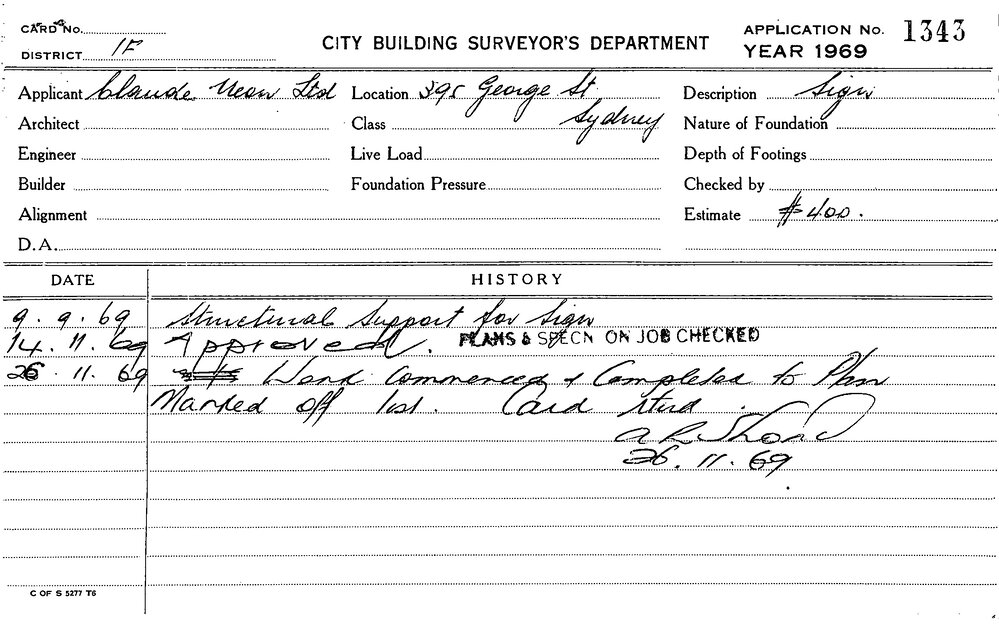 CARD No.
DISTRICT 1F
CITY BUILDING SURVEYOR'S DEPARTMENT
APPLICATION No. 1343
YEAR 1969
Applicant Claude Neon Ltd Location 395 George St Description Sign
Architect Class Sydney Nature of Foundation
Engineer Live Load Depth of Footings
Builder Foundation Pressure Checked by
Alignment Estimate $400.
D.A.
DATE HISTORY
9.9.69 Structural Support for Sign
14.11.69 Approved. PLANS & SPECN ON JOB CHECKED
26.11.69 Work Commenced & Completed to Plan
Marked off list. Card
26.11.69
C OF S 5277 T6